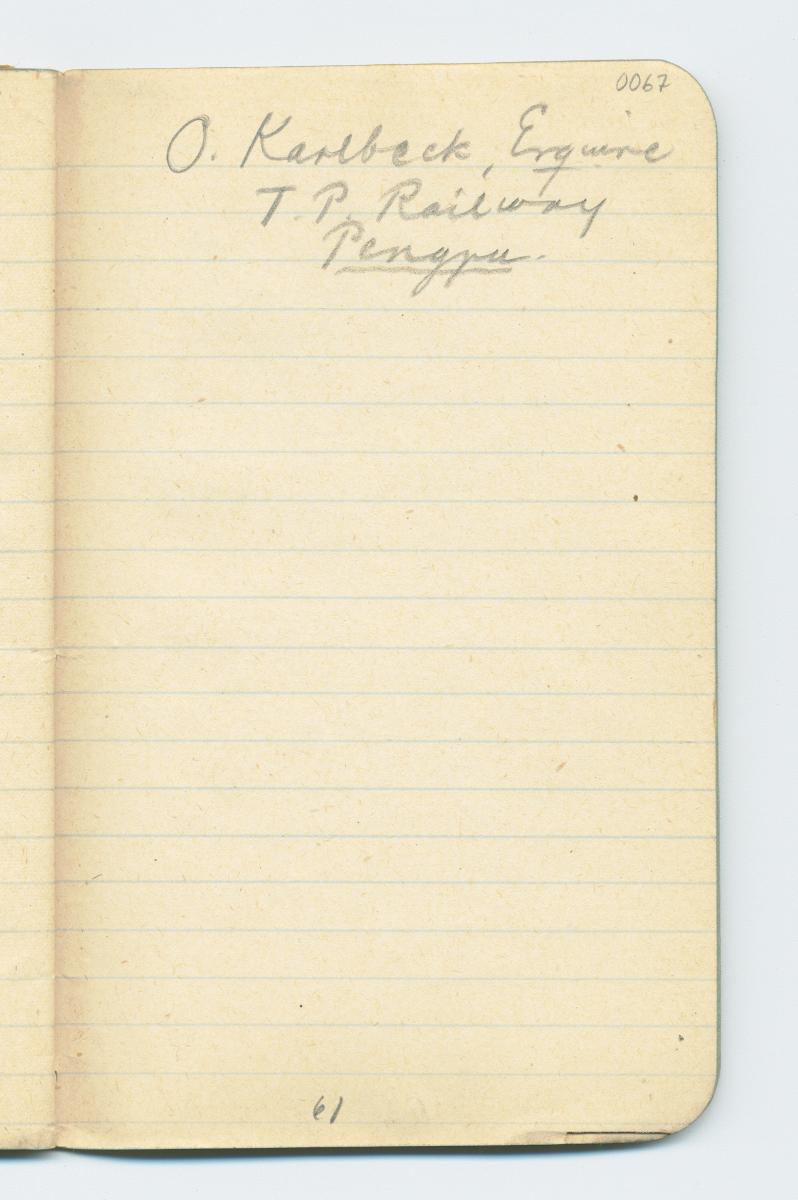 0067
O. Karlbeck, Esquire
T. P. Railway
Pengpu.
61